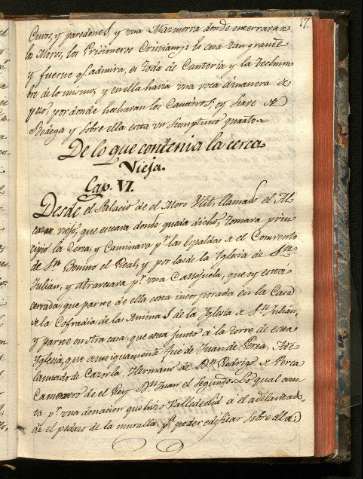 17.
Cruos, y paredones, y una Mazmorra donde encerravan a
los Moros, los Prisioneros Cristianos: lo cual es tan grande
y fuerte q.e admira, es toda de Cantería y la
de lo mismo, y en ella havia una voca de manera de
pozo, por donde hechavan los Cautivos, y llave de
Piedega y sobre ella esta un Sumptuoso quarto.
De lo que contenia la cerca
Vieja.
Cap. VI.
Desde el Palacio de el Moro llamado el Al
cazar viejo, que estava donde queda dicho, tomava prin
cipio la Cerca, y Caminava p.r las Espaldas de el Convento
de S.to Domingo el Real, y por la de la Iglesia de S.n
Julian, y atravesava p.r una Callejuela, que oy esta
cerrada; que parte de ella esta incorporada en la Casa
de la Cofradia de las Animas de la Iglesia de S.n Julian,
y parte en otra casa, que esta junto a la torre de esta
Iglesia, que es mui antigua fue de Juan de Perea, Ade
lantado de Cazorla, Hermano de D.n Rodrigo de Perea
Camarero de el Rey D.n Juan el Segundo. Lo qual cons
ta p.r una donacion que hizo Valladolid a el adelantado
de el pedazo de la muralla, p.a poder edificar sobre ella;